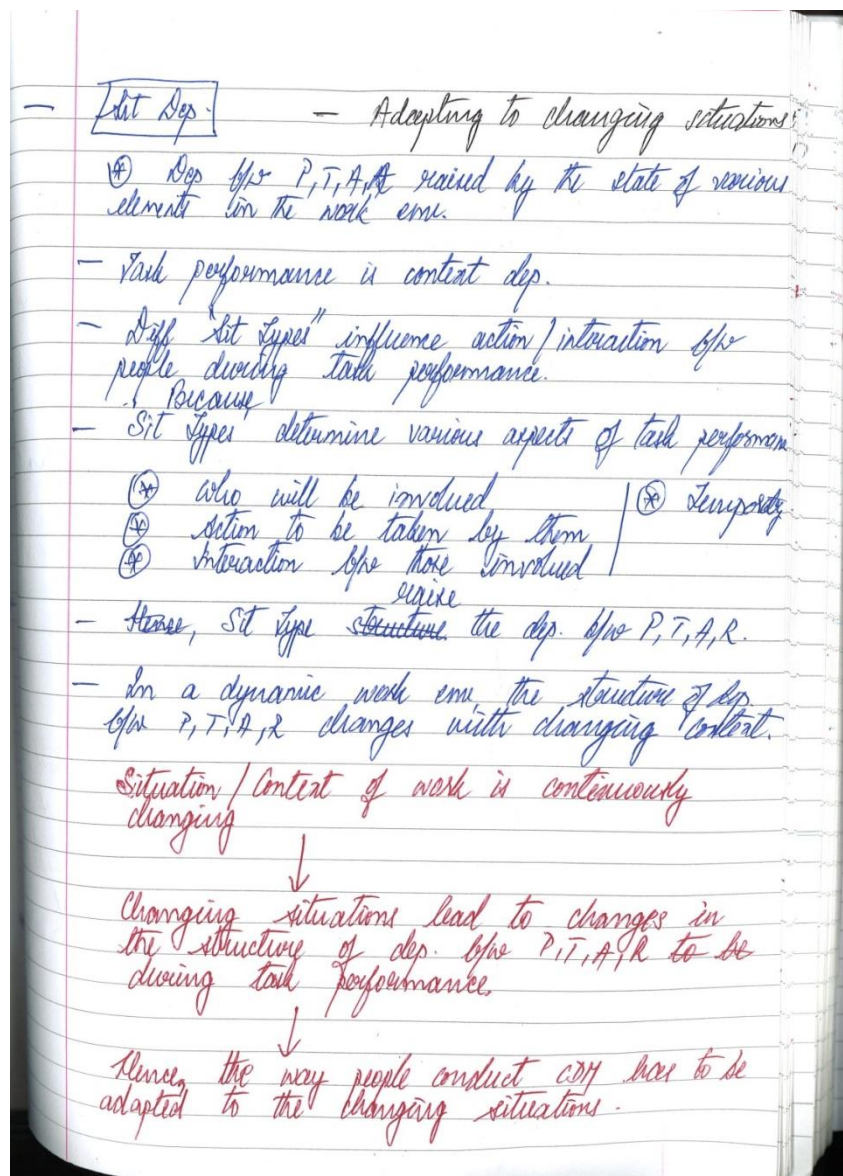 — Sit Dep. — Adapting to changing situations
* Dep b/w P, T, A, R raised by the state of various
elements in the work env.
— Task performance is context dep.
— Diff "Sit Types" influence action / interaction b/w
people during task performance.
Because
— Sit Types determine various aspects of task performan
* who will be involved | * Temporality
* Action to be taken by them
* Interaction b/w those involved
raise
— Hence, Sit Type structure the dep. b/w P, T, A, R.
— In a dynamic work env, the structure of dep.
b/w P, T, A, R changes with changing context.
Situation / Context of work is continuously
changing
↓
Changing situations lead to changes in
the structure of dep. b/w P, T, A, R to be
during task performance.
↓
Hence, the way people conduct CDM has to be
adapted to the changing situations.